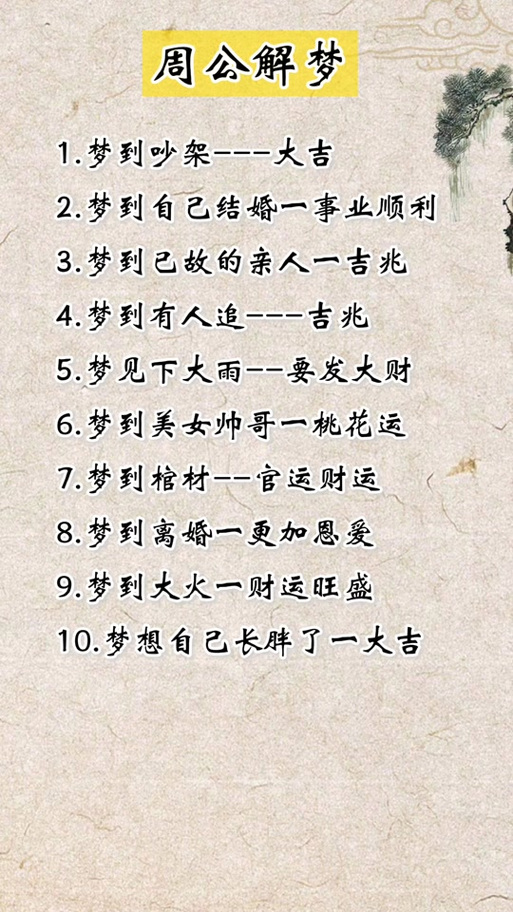 周公解梦
1.梦到吵架---大吉
2.梦到自己结婚一事业顺利
3.梦到已故的亲人一吉兆
4.梦到有人追---吉兆
5.梦见下大雨--要发大财
6.梦到美女帅哥一桃花运
7.梦到棺材--官运财运
8.梦到离婚一更加恩爱
9.梦到大火一财运旺盛
10.梦想自己长胖了一大吉